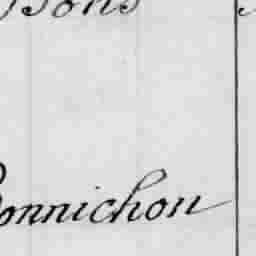 Bons
onnichon